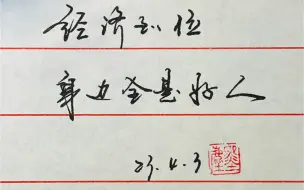 经济到位
身边全是好人
23.4.3